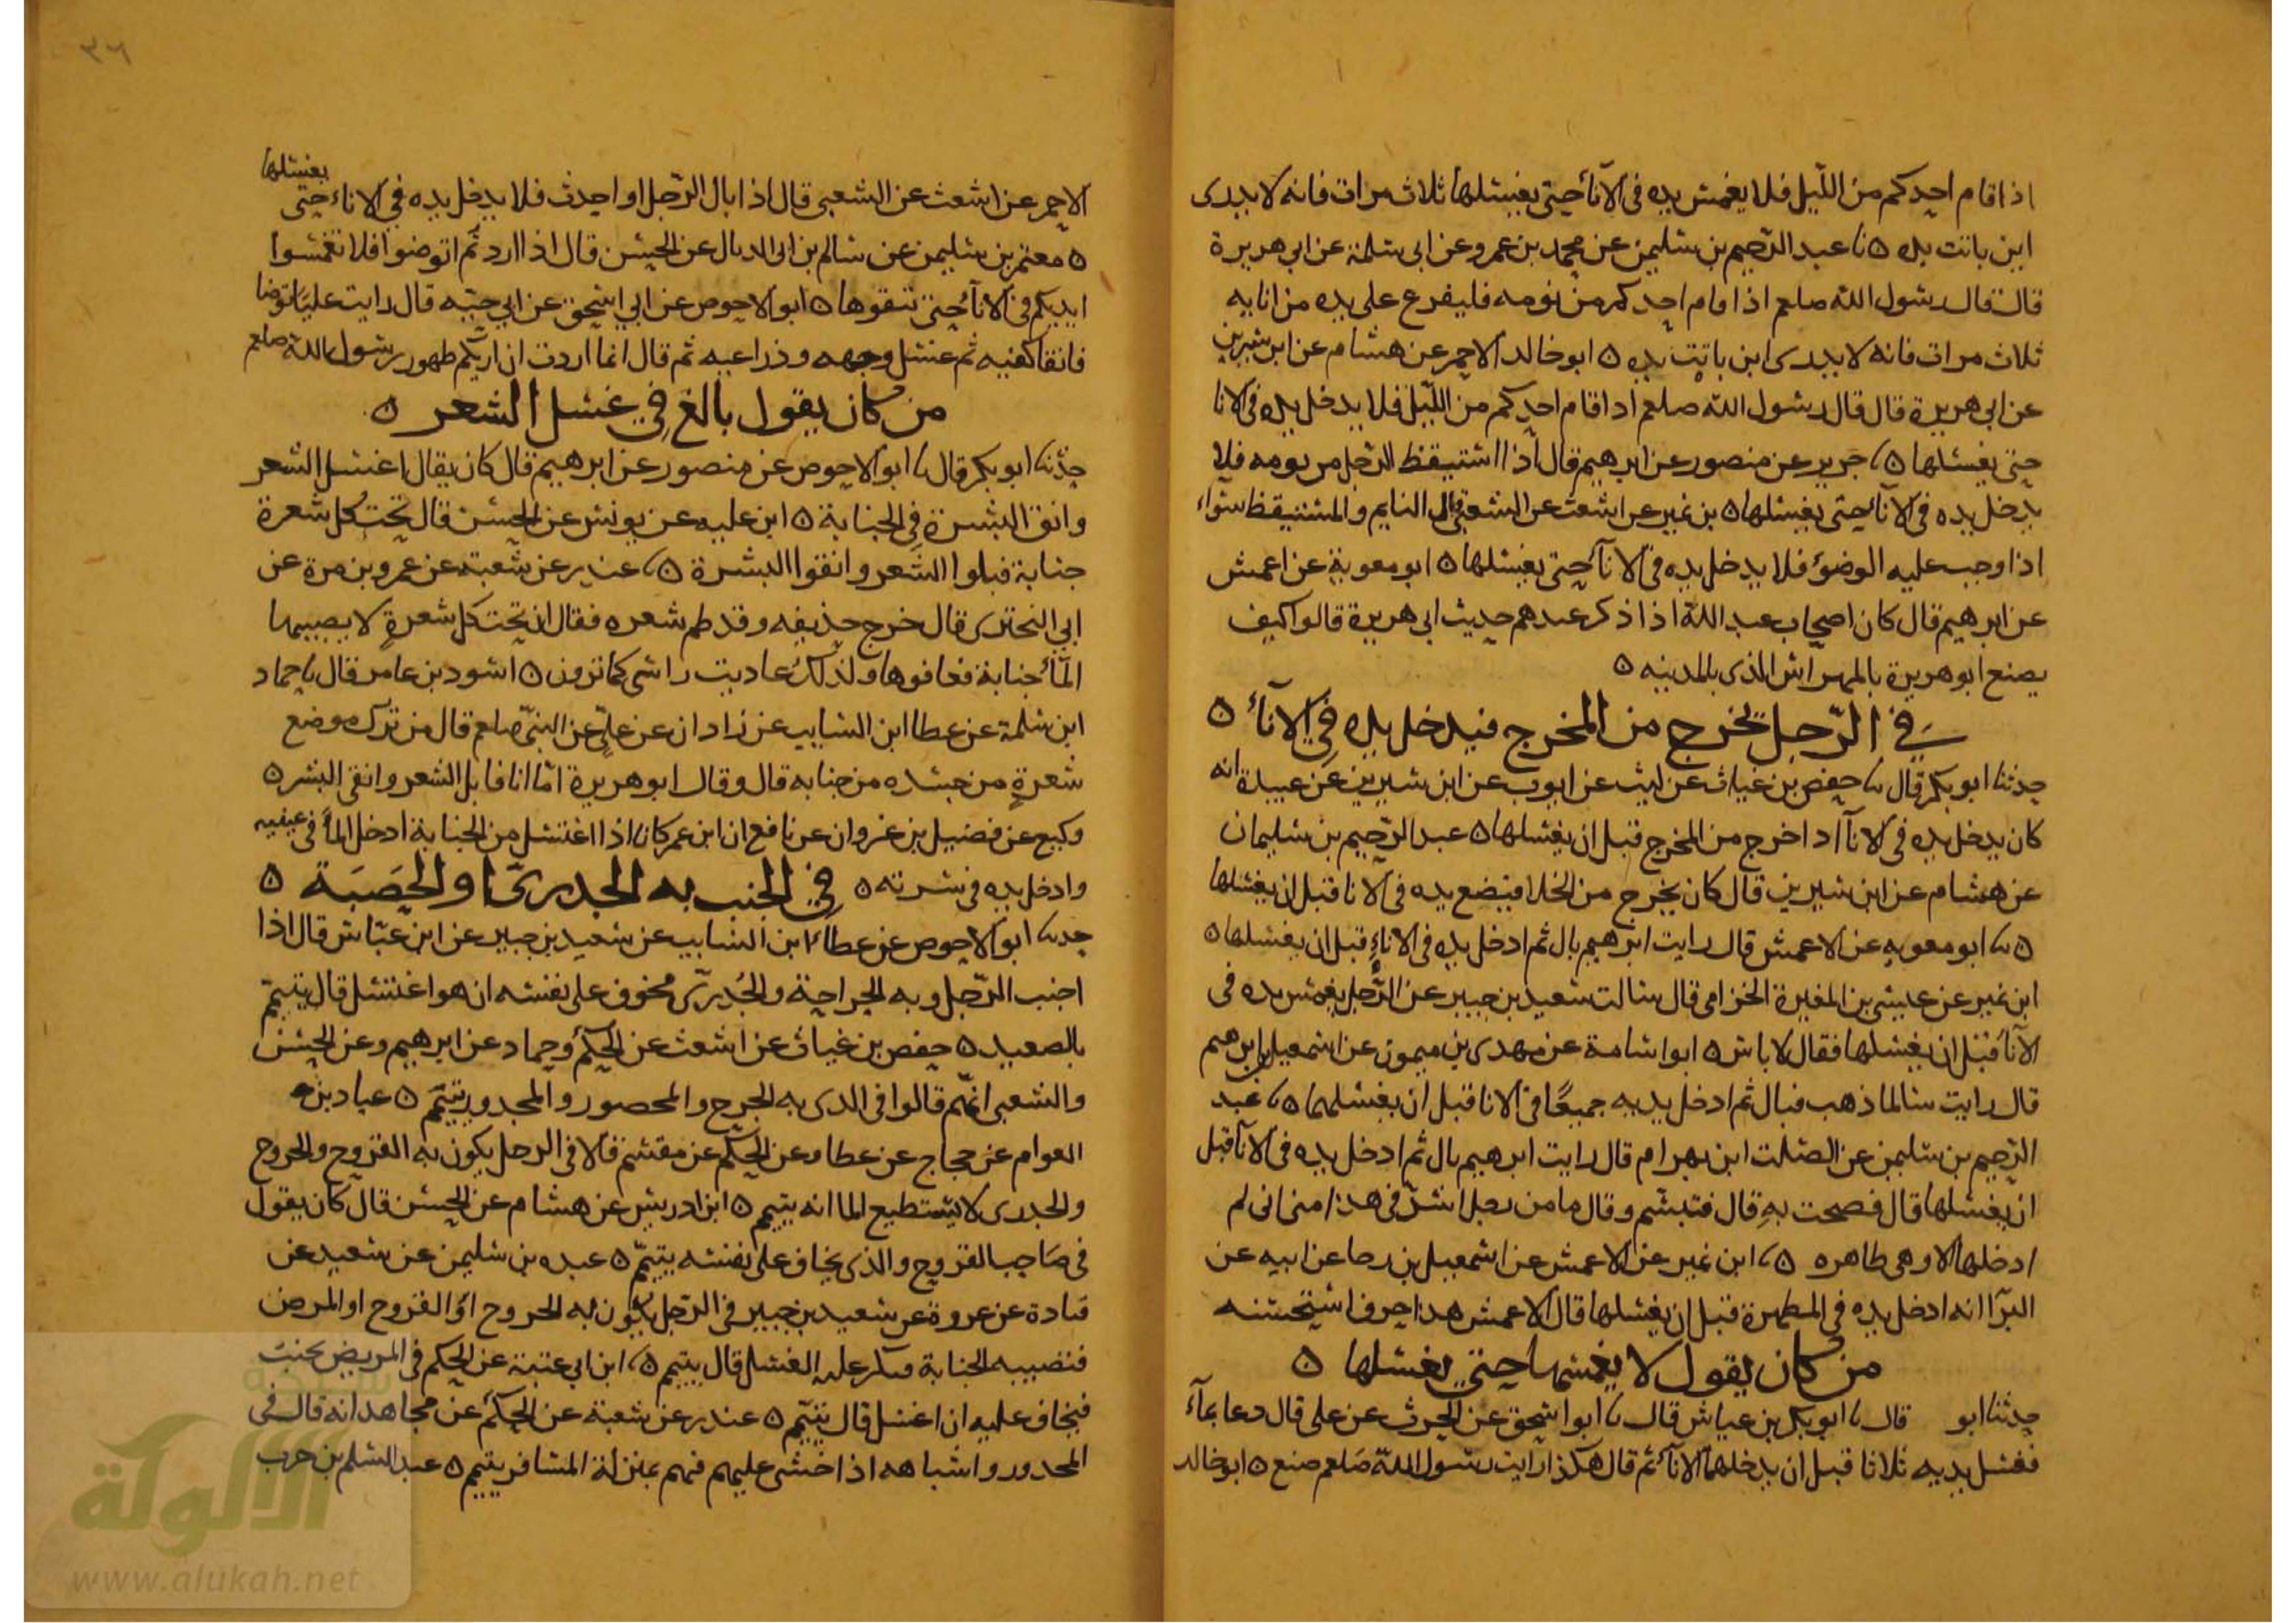 اذا قام احدكم من اللّيل فلا يغمس يده فى الآناء حتى يغسلها ثلاث مرات فانه لا يدرى
اين باتت يده ٥ نا عبد الرّحيم بن سليمن عن محمد بن عمرو عن ابى سلمة عن ابى هريرة
قال قال رسول الله صلعم اذا قام احدكم من نومه فليفرغ على يده من انايه
ثلاث مرات فانه لا يدرى اين باتت يده ٥ ابو خالد الاحمر عن هشام عن ابن سيرين
عن ابى هريرة قال قال رسول الله صلعم اذا قام احدكم من اللّيل فلا يدخل يده فى الانا
حتى يغسلها ٥ نا جرير عن منصور عن ابرهيم قال اذا استيقظ الرّجل من نومه فلا
يدخل يده فى الاناء حتى يغسلها ٥ بن نمير عن اشعث عن الشعبى قال النايم والمستيقظ سواء
اذا وجب عليه الوضوء فلا يدخل يده فى الاناء حتى يغسلها ٥ ابو معوية عن اعمش
عن ابرهيم قال كان اصحاب عبد الله اذا ذكر عندهم حديث ابى هريرة قالوا كيف
يصنع ابو هريرة بالمهراس الذى بالمدينه ٥
فى الرّجل يخرج من المخرج فيدخل يده فى الآناء ٥
حدثنا ابو بكر قال نا حفص بن غياث عن ليث عن ايوب عن ابن سيرين عن عبيدة انه
كان يدخل يده فى الانآ اذا خرج من المخرج قبل ان يغسلها ٥ عبد الرّحيم بن سليمان
عن هشام عن ابن سيرين قال كان يخرج من الخلا فيضع يده فى الانا قبل ان يغسلها
٥ نا ابو معويه عن الاعمش قال رايت ابرهيم بال ثم ادخل يده فى الاناء قبل ان يغسلها ٥
ابن نمير عن عيسى بن المغيرة الخزامى قال سالت سعيد بن جبير عن الرّجل يغمس يده فى
الآناء قبل ان يغسلها فقال لا باس ٥ ابو اسامة عن مهدى بن ميمون عن اسمعيل بن ابرهيم
قال رايت سالما ذهب فبال ثم ادخل يديه جميعًا فى الانا قبل ان يغسلهما ٥ نا عبد
الرّحيم بن سليمن عن الصلت ابن بهرام قال رايت ابرهيم بال ثم ادخل يده فى الانآ قبل
ان يغسلها قال فصحت به قال فتبسّم وقال ما من رجل اشدّ فى هذا منى انى لم
ادخلها الا وهى طاهره ٥ نا ابن نمير عن الاعمش عن اسمعيل بن رجا عن ابيه عن
البرآ انه ادخل يده فى المطهرة قبل ان يغسلها قال الاعمش هذا حرف استحسنه
من كان يقول لا يغمسها حتى يغسلها ٥
حدثنا ابو قال نا ابو بكر بن عياش قال نا ابو اسحق عن الحرث عن على قال دعا بمآء
فغسل يديه ثلاثا قبل ان يدخلهما الاناء ثم قال هكذا رايت رسول الله صلعم صنع ٥ ابو خالد
٣٦
الاحمر عن اشعث عن الشعبى قال اذا بال الرّجل او احدث فلا يدخل يده فى الاناء حتى يغسلها
٥ معتمر بن سليمن عن سالم بن ابى الديال عن الحسن قال اذا اردتم اتوضوا فلا تغمسوا
ايديكم فى الاناء حتى تنقوها ٥ ابو الاحوص عن ابى اسحق عن ابى حيّه قال رايت عليّا توضا
فانقا كفيه ثم غسل وجهه وذراعيه ثم قال انما اردت ان اريكم طهور رسول الله صلعم
من كان يقول بالغ فى غسل الشعر ٥
حدّثنا ابو بكر قال نا ابو الاحوص عن منصور عن ابرهيم قال كان يقال اغسل الشعر
وانق البشرة فى الجنابة ٥ ابن عليه عن يونس عن الحسن قال تحت كل شعرة
جنابة فبلوا الشعر وانقوا البشرة ٥ نا غندر عن شعبة عن عمرو بن مرة عن
ابى البخترى قال خرج حذيفه وقد طم شعره فقال ان تحت كل شعرةٍ لا يصيبها
المآء جنابة فعافوها ولذلك عاديت راسى كما ترون ٥ اسود بن عامر قال نا حماد
ابن سلمة عن عطا ابن السايب عن زادان عن علىّ عن النبىّ صلعم قال من ترك موضع
شعرةٍ من جسده من جنابه قال وقال ابو هريرة امّا انا فابل الشعر وانقى البشر ٥
وكيع عن فضيل بن غزوان عن نافع ان ابن عمر كان اذا اغتسل من الجنابة ادخل المآء فى عينيه
وادخل يده فى سرته ٥ فى الجنب به الجدرىّ او الحَصَبَة ٥
حدثنا ابو الاحوص عن عطاء ابن السايب عن سعيد بن جبير عن ابن عبّاس قال اذا
اجنب الرّجل وبه الجراحة والجُدرىّ مخوف على نفسه ان هو اغتسل قال يتيمّم
بالصعيد ٥ حفص بن غياث عن اشعث عن الحكم وحماد عن ابرهيم وعن الحسن
والشعبى انّهم قالوا فى الذى به الجرح والمحصور والمجدور يتيمّم ٥ عباد بن
العوام عن حجاج عن عطا وعن الحكم عن مقسم قالا فى الرجل يكون به القروح والجروح
والجدرى لا يستطيع الما انه يتيمم ٥ ابن ادريس عن هشام عن الحسن قال كان يقول
فى صَاحب القروح والذى يخاف على نفسه يتيمّم ٥ عبده بن سليمن عن سعيد عن
قتادة عن عروة عن سعيد بن جبير فى الرّجل يكون به الجروح او القروح او المرض
فتصيبه الجنابة فيكبر عليه الغسل قال يتيمم ٥ نا ابن ابى عتبة عن الحكم فى المريض يجنب
فيخاف عليه ان اغتسل قال يتيمّم ٥ غندر عن شعبة عن الحكم عن مجاهد انه قال فى
المجدور واشباهه اذا خشى عليهم فهم بمنزلة المسافر يتيمم ٥ عبد السلم بن حرب
شبكة
الألوكة
www.alukah.net